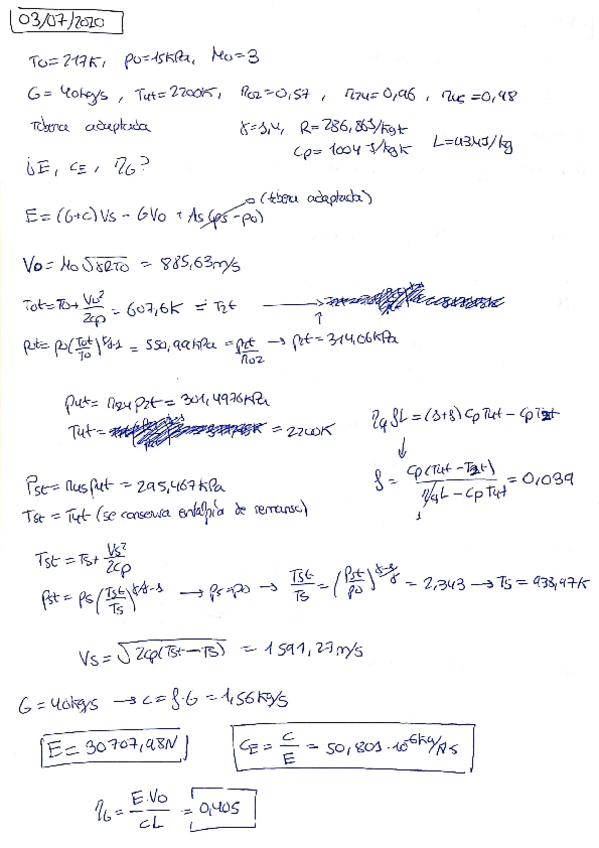 03/07/2020
T0=217K, p0=15kPa, M0=3
G=40kg/s, T4t=2200K, π02=0,57, π24=0,96, π45=0,98
Tobera adaptada γ=1,4, R=286,86J/kgK L=43MJ/kg
cp=1004 J/kgK
¿E, cE, η6?
0 (tobera adaptada)
E=(G+c)Vs - GV0 + As(ps-p0)
V0=M0√γRT0 = 885,63m/s
T0t=T0+V0²/2cp=607,6K = T2t
p0t=p0(T0t/T0)^γ/γ-1=550,99kPa=p2t/π02 → p2t=314,06kPa
p4t=π24p2t=301,4976kPa
T4t= = 2200K
ηq f L=(1+f) cp T4t - cp T2t
↓
f = cp(T4t-T2t)/ηqL-cpT4t = 0,039
1
P5t=π45p4t=295,467kPa
T5t=T4t (se conserva entalpía de remanso)
T5t=Ts+Vs²/2cp
p5t=ps(T5t/Ts)^γ/γ-1 → ps=p0 → T5t/Ts=(p5t/p0)^γ-1/γ=2,343 → Ts=938,97K
Vs=√2cp(T5t-Ts) = 1591,27m/s
G=40kg/s → c=f·G=1,56kg/s
E=30707,98N
cE=c/E=50,801·10^-6kg/Ns
η6=E·V0/cL=0,405